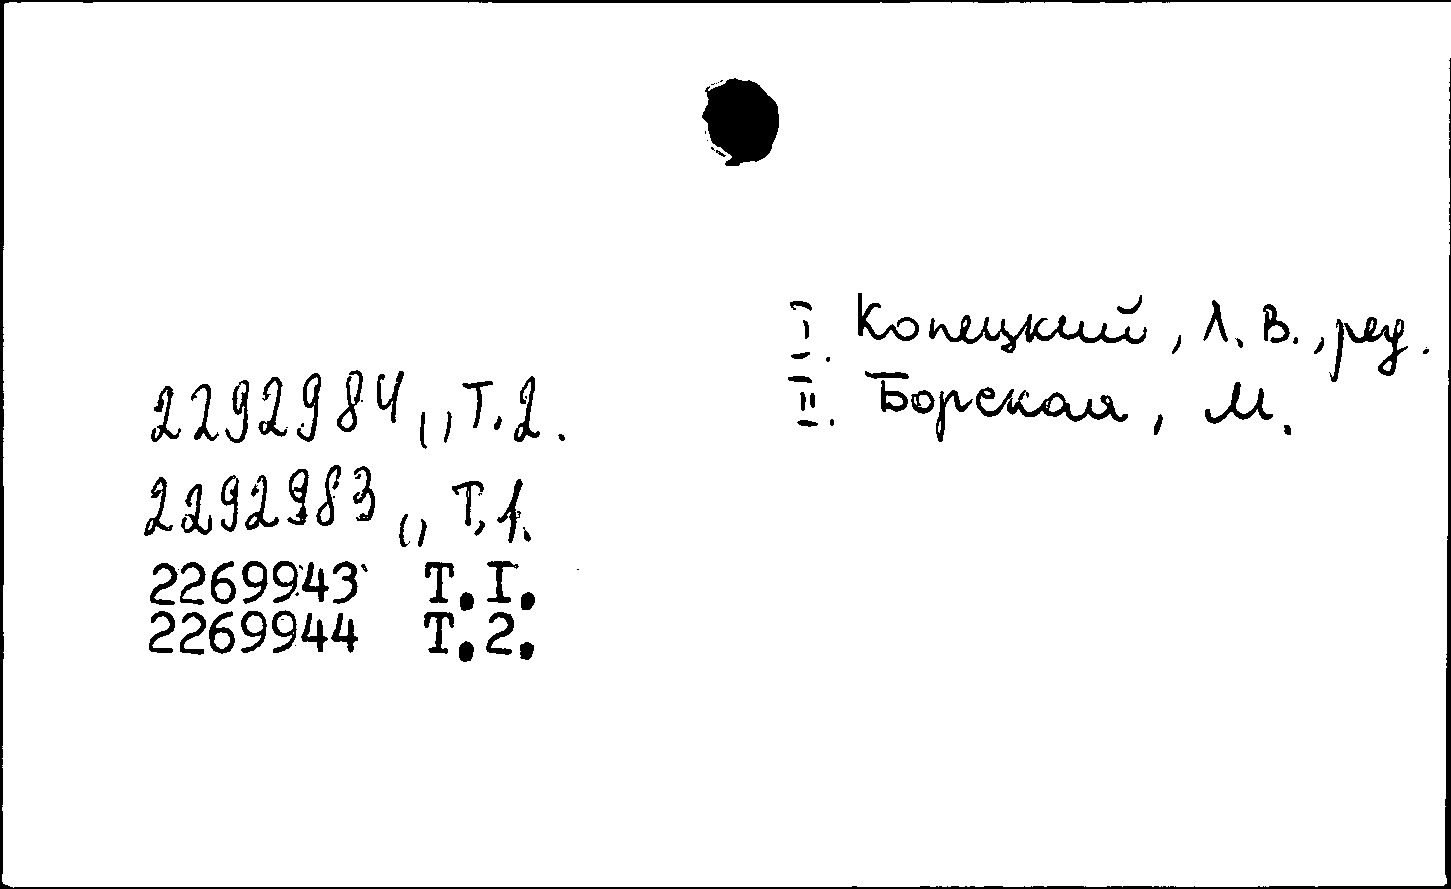 I. Копецкий, Л. В., ред.
II. Борская, М.
2292984 ,, Т. 2.
2292983 ,, Т. 1.
2269943 Т.I.
2269944 Т.2.